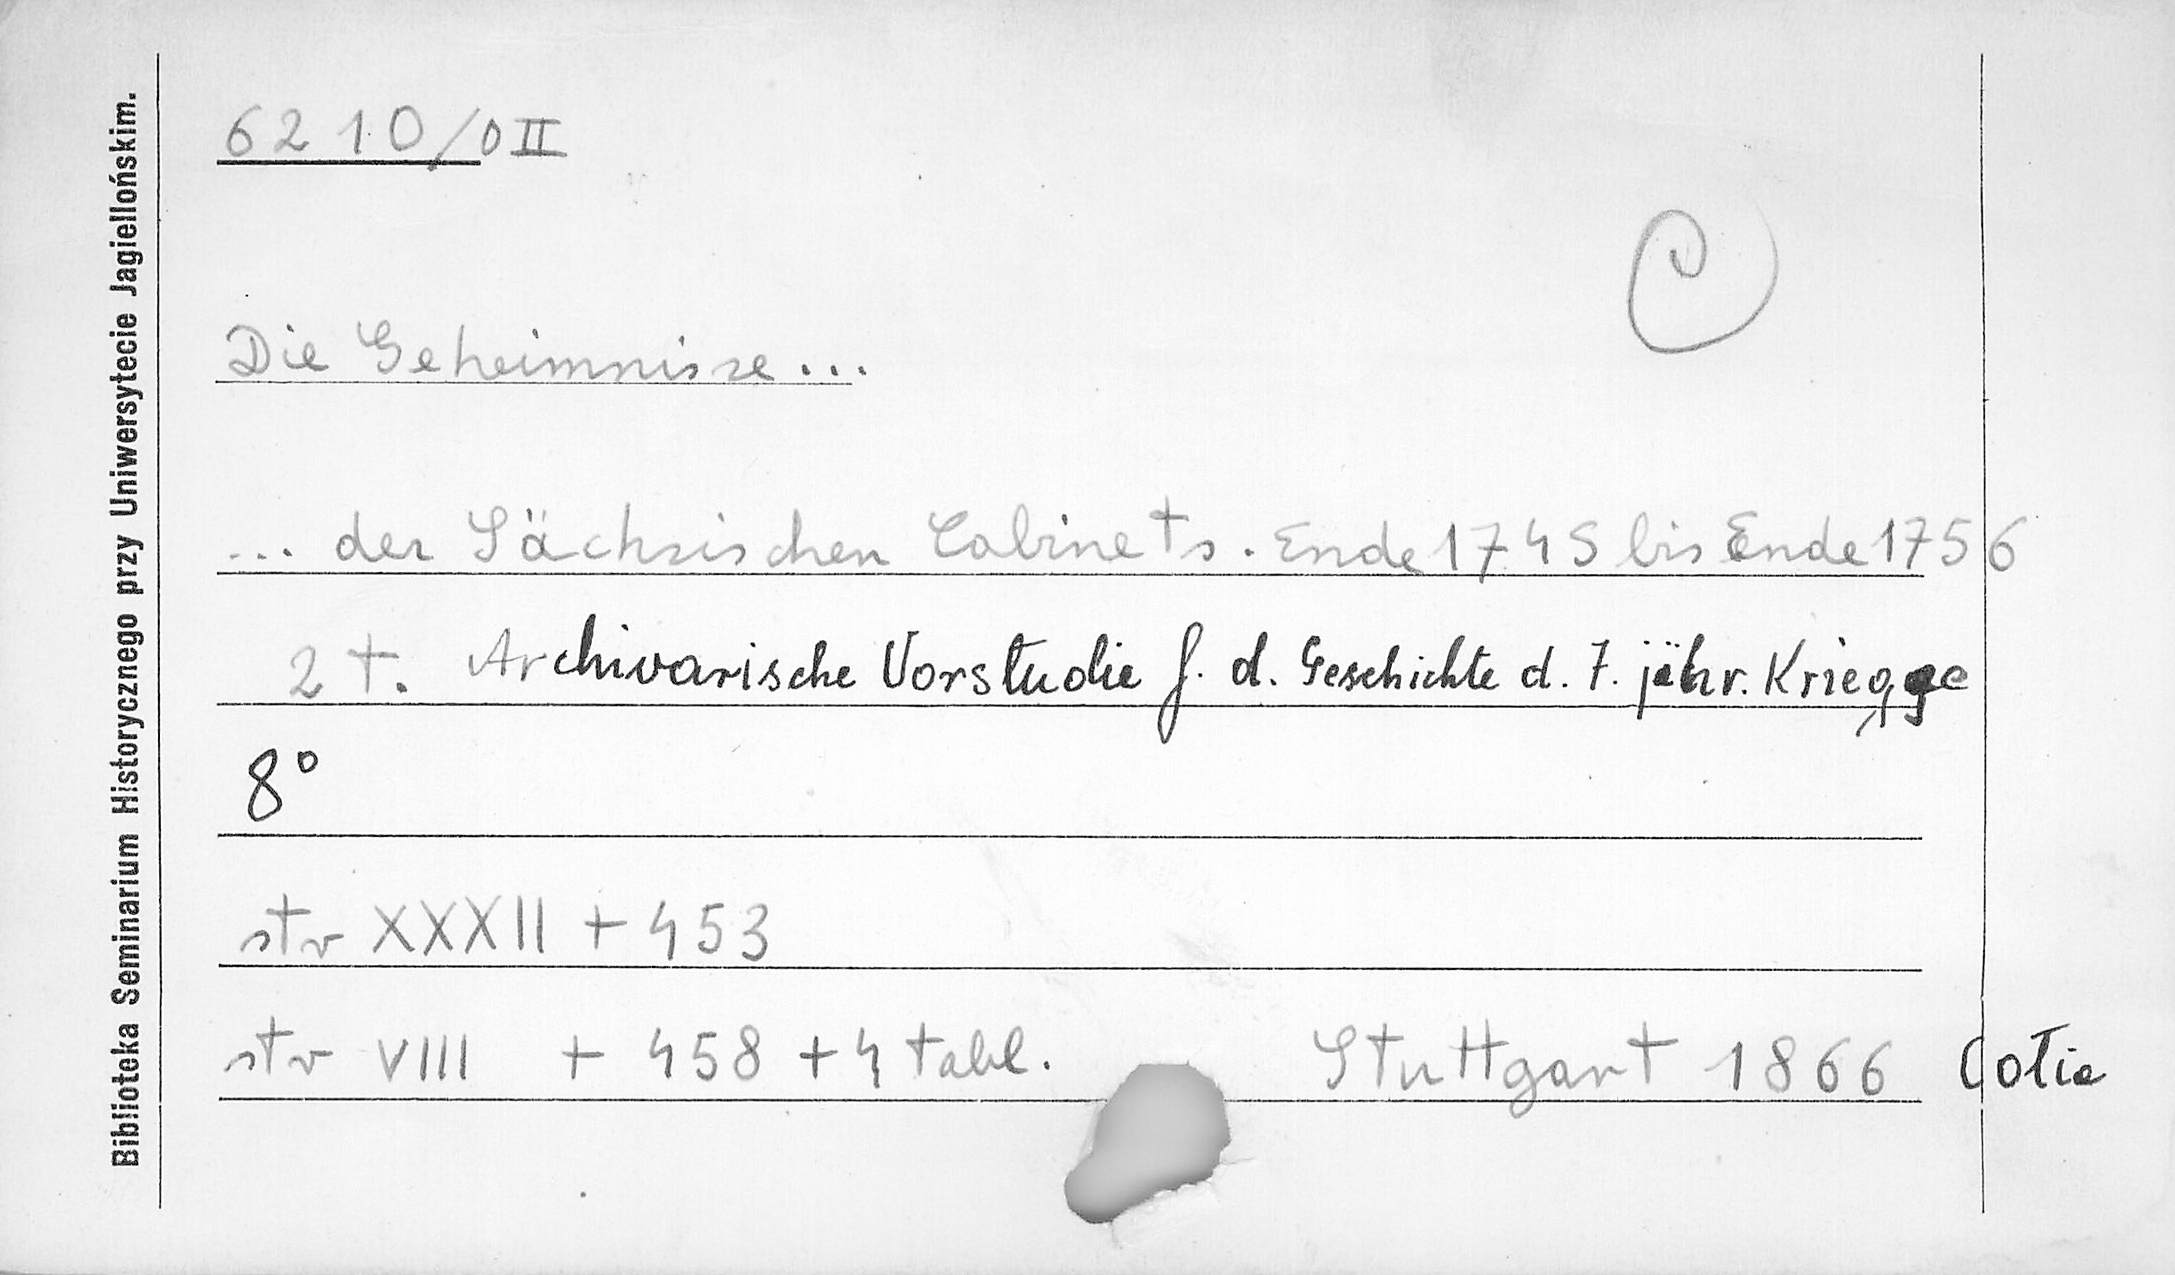 Biblioteka Seminarium Historycznego przy Uniwersytecie Jagiellońskim.
6210/0 II
C
Die Geheimnisse...
... der Sächsischen Cabinets. Ende 1745 bis Ende 1756
2 t. Archivarische Vorstudie f. d. Geschichte d. 7. jähr. Kriege
8°
str XXXII + 453
str VIII + 458 + 4 tabl. Stuttgart 1866 Cotta